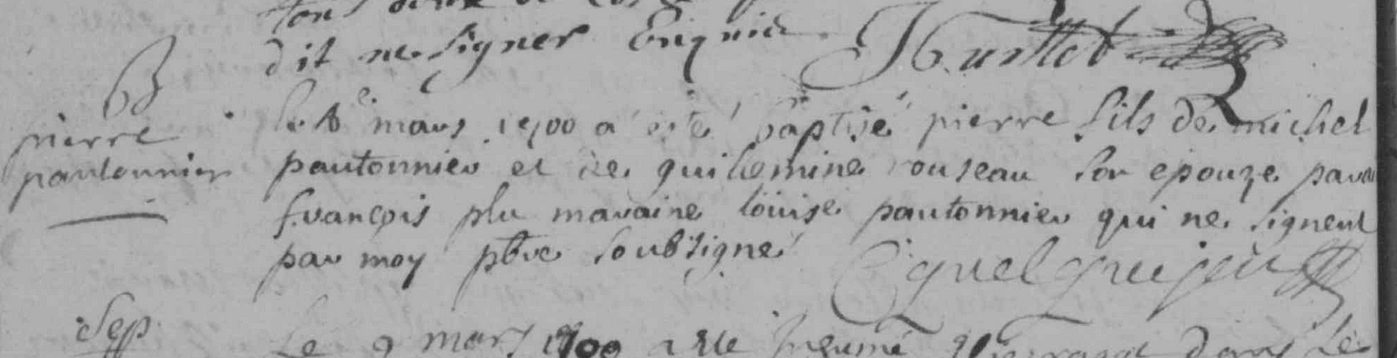 dit ne signer
B
pierre
pautonnier
le 8e mars 1700 a esté baptisé pierre fils de michel
pautonnier et de guilemine rouseau son epouze parа
françois plu maraine louise pautonnier qui ne signent
par moy pbre soubsigné
Sep
Le 9 mars 1700 a esté inhumé dans le